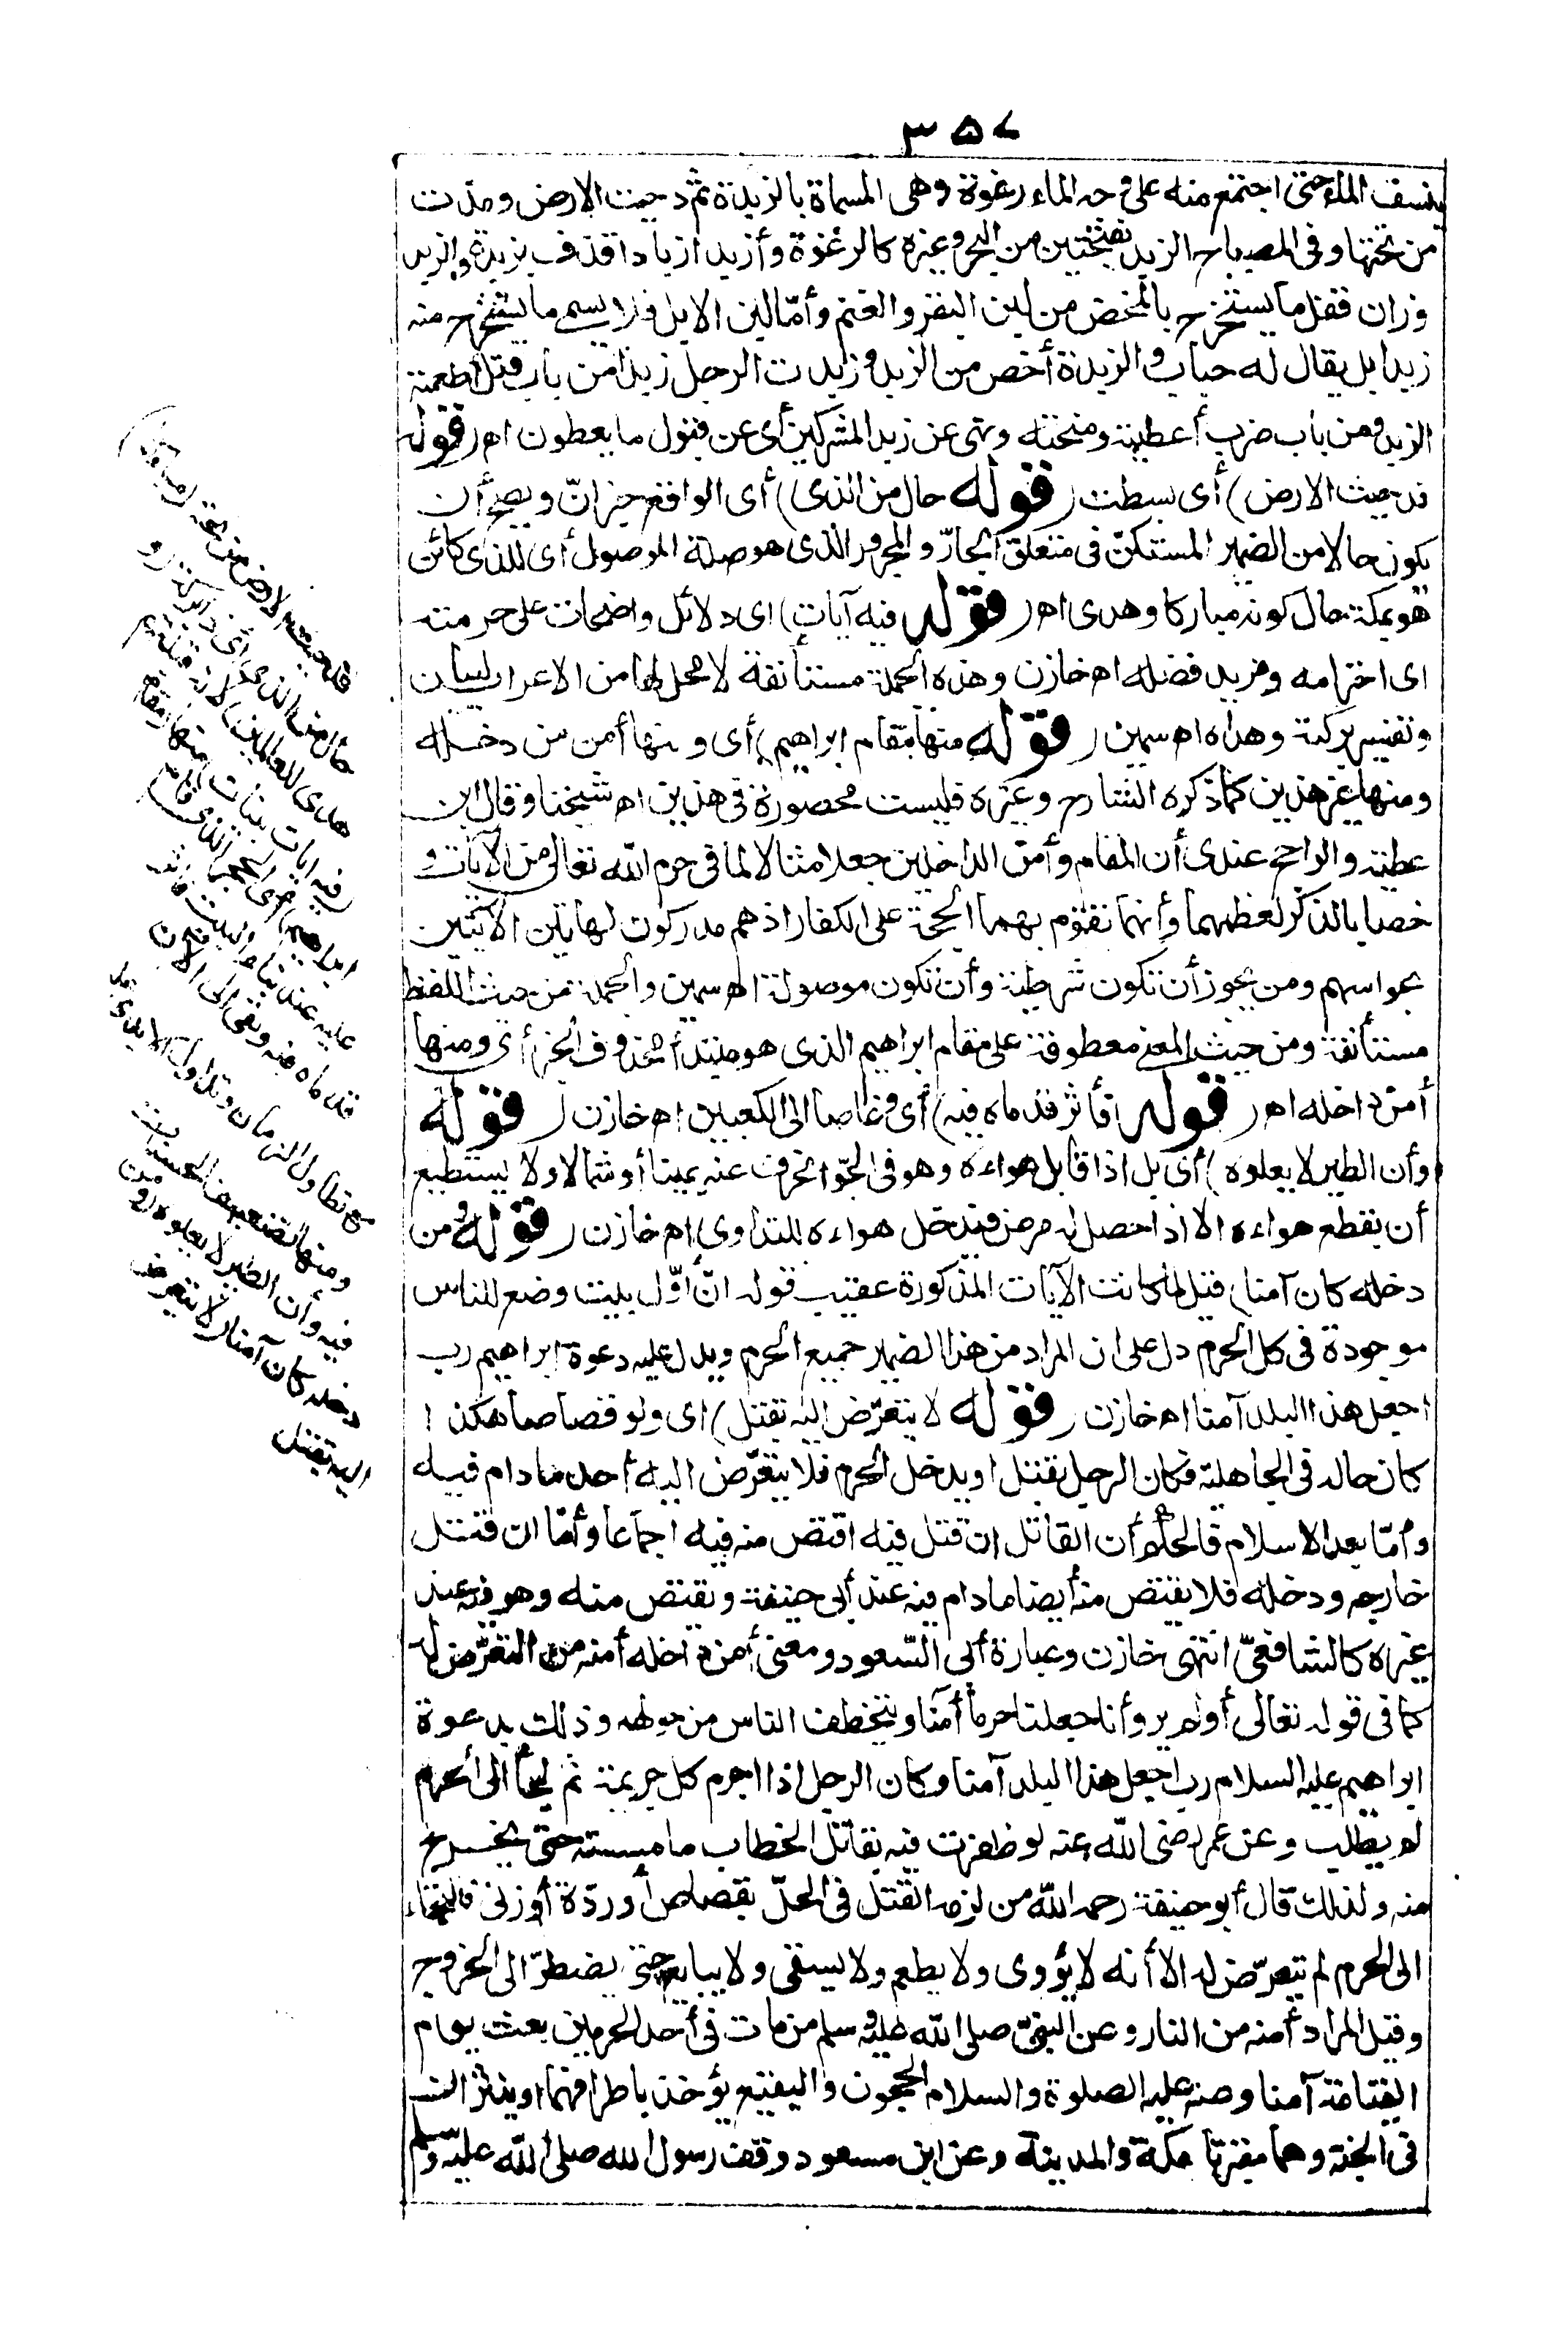 ٣٥٧
ينسف الماء حتى اجتمع منه على وجه الماء رغوة وهى المسماة بالزبدة ثم دحيت الارض ومدّت
من تحتها وفى المصباح الزبد بفتحتين من البحر وغيره كالرغوة وأزبد ازبادا قذف بزبده والزبد
وزان قفل ما يستخرج بالمخض من لبن البقر والغنم وأمّا لبن الابل فلا يسمى ما يستخرج منه
زبدا بل يقال له حباب والزبدة أخص من الزبد وزبدت الرجل زبدا من باب قتل أطعمته
الزبد ومن باب ضرب أعطيته ومنحته ونهى عن زبد المشركين أى عن قبول ما يعطون اه (قوله
فدحيت الارض) أى بسطت (قوله حال من الذى) أى الواقع خبر انّ ويصح أن
يكون حالا من الضمير المستكنّ فى متعلق الجارّ والمجرور الذى هو صلة الموصول أى للذى كائن
هو بمكة حال كونه مباركا وهدى اه (قوله فيه آيات) اى دلائل واضحات على حرمته
اى احترامه ومزيد فضله اه خازن وهذه الجملة مستأنفة لا محل لها من الاعراب لبيان
وتفسير بركته وهداه اه سمين (قوله منها مقام ابراهيم) أى ومنها أمن من دخله
ومنها غير هذين كما ذكره الشارح وغيره فليست محصورة فى هذين اه شيخنا وقال ابن
عطية والراجح عندى أن المقام وأمن الداخلين جعلا مثالا لما فى حرم الله تعالى من الآيات و
خصا بالذكر لعظمهما وأنهما تقوم بهما الحجة على الكفار اذ هم مدركون لهاتين الآيتين
بحواسهم ومن يجوز أن تكون شرطية وأن تكون موصولة اه سمين والجملة من حيث اللفظ
مستأنفة ومن حيث المعنى معطوفة على مقام ابراهيم الذى هو مبتدأ محذوف الخبر أى ومنها
أمن داخله اه (قوله فأثر قدماه فيه) أى وغاصا الى الكعبين اه خازن (قوله
وأن الطير لا يعلوه) أى بل اذا قابل هواءه وهو فى الجوّ انحرف عنه يمينا أو شمالا ولا يستطيع
أن يقطع هواءه الا اذا حصل له مرض فيدخل هواءه للتداوى اه خازن (قوله ومن
دخله كان آمنا) قيل لما كانت الآيات المذكورة عقيب قوله انّ أوّل بيت وضع للناس
موجودة فى كل الحرم دل على ان المراد من هذا الضمير جميع الحرم ويدل عليه دعوة ابراهيم رب
اجعل هذا البلد آمنا اه خازن (قوله لا يتعرّض اليه بقتل) اى ولو قصاصا هكذا
كان حاله فى الجاهلية فكان الرجل يقتل ويدخل الحرم فلا يتعرّض اليه أحد ما دام فيه
وأمّا بعد الاسلام فالحكم أن القاتل ان قتل فيه اقتص منه فيه اجماعا وأمّا ان قتل
خارجه ودخله فلا يقتص منه أيضا مادام فيه عند أبى حنيفة ويقتص منه وهو فيه عند
غيره كالشافعىّ انتهى خازن وعبارة أبى السّعود ومعنى أمن داخله أمنه من التعرّض له
كما فى قوله تعالى أولم يروا أنا جعلنا حرما آمنا ويتخطف الناس من حولهم وذلك بدعوة
ابراهيم عليه السلام رب اجعل هذا البلد آمنا وكان الرجل اذا اجرم كل جريمة ثم لجأ الى الحرم
لم يطلب وعن عمر رضى الله عنه لو ظفرت فيه بقاتل الخطاب ما مسسته حتى يخرج
منه ولذلك قال أبو حنيفة رحمه الله من لزمه القتل فى الحلّ بقصاص أو ردّة أو زنى فالتجاء
الى الحرم لم يتعرّض له الا أنه لا يؤوى ولا يطعم ولا يسقى ولا يبايع حتى يضطرّ الى الخروج
وقيل المراد أمنه من النار وعن النبىّ صلى الله عليه وسلم من مات فى أحد الحرمين بعث يوم
القيامة آمنا وعنه عليه الصلوة والسلام الحجون والبقيع يؤخذ باطرافهما وينثران
فى الجنة وهما مقبرتا مكة والمدينة وعن ابن مسعود وقف رسول الله صلى الله عليه وسلم
فدحيت الارض من تحته
حال من الذى أى ذا بركة (و
هدى للعالمين) لانه قبلتهم
(فيه آيات بينات) منها (مقام
ابراهيم) أى الحجر الذى قام
عليه عند بناء البيت فأثر
قدماه فيه وبقى الى الآن
مع تطاول الزمان وتداول الايدى عليه
ومنها تضعيف الحسنات
فيه وأن الطير لا يعلوه (ومن
دخله كان آمنا) لا يتعرض
اليه بقتل